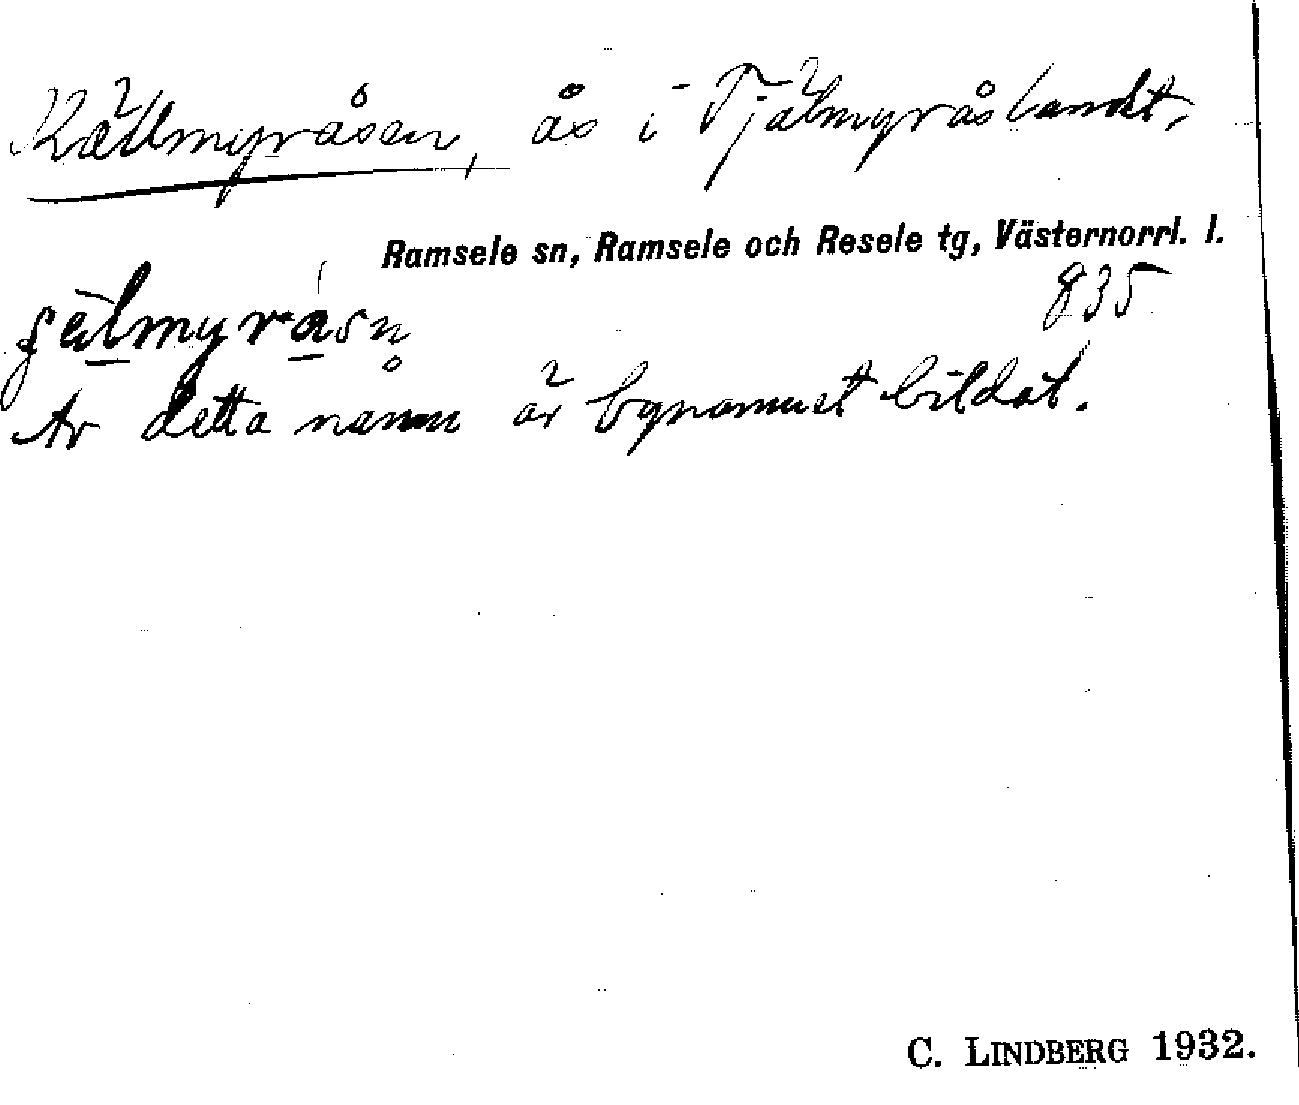 Källmyråsen, ås i Tjälmyråslandet,
Ramsele sn, Ramsele och Resele tg, Västernorrl. l.
835
Av detta namn är bynamnet bildat.
C. LINDBERG 1932.